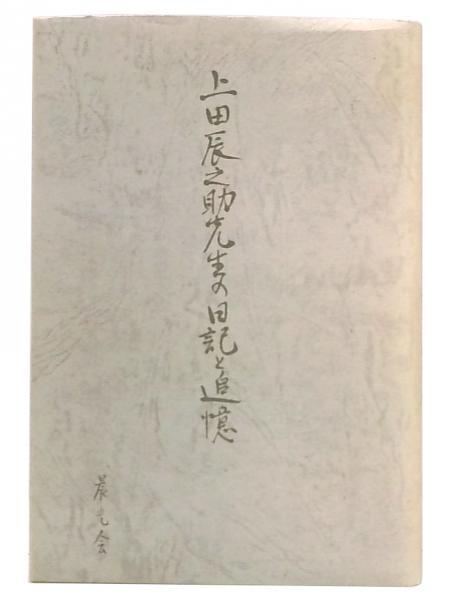 上田辰之助先生の日記と追憶
晨光会